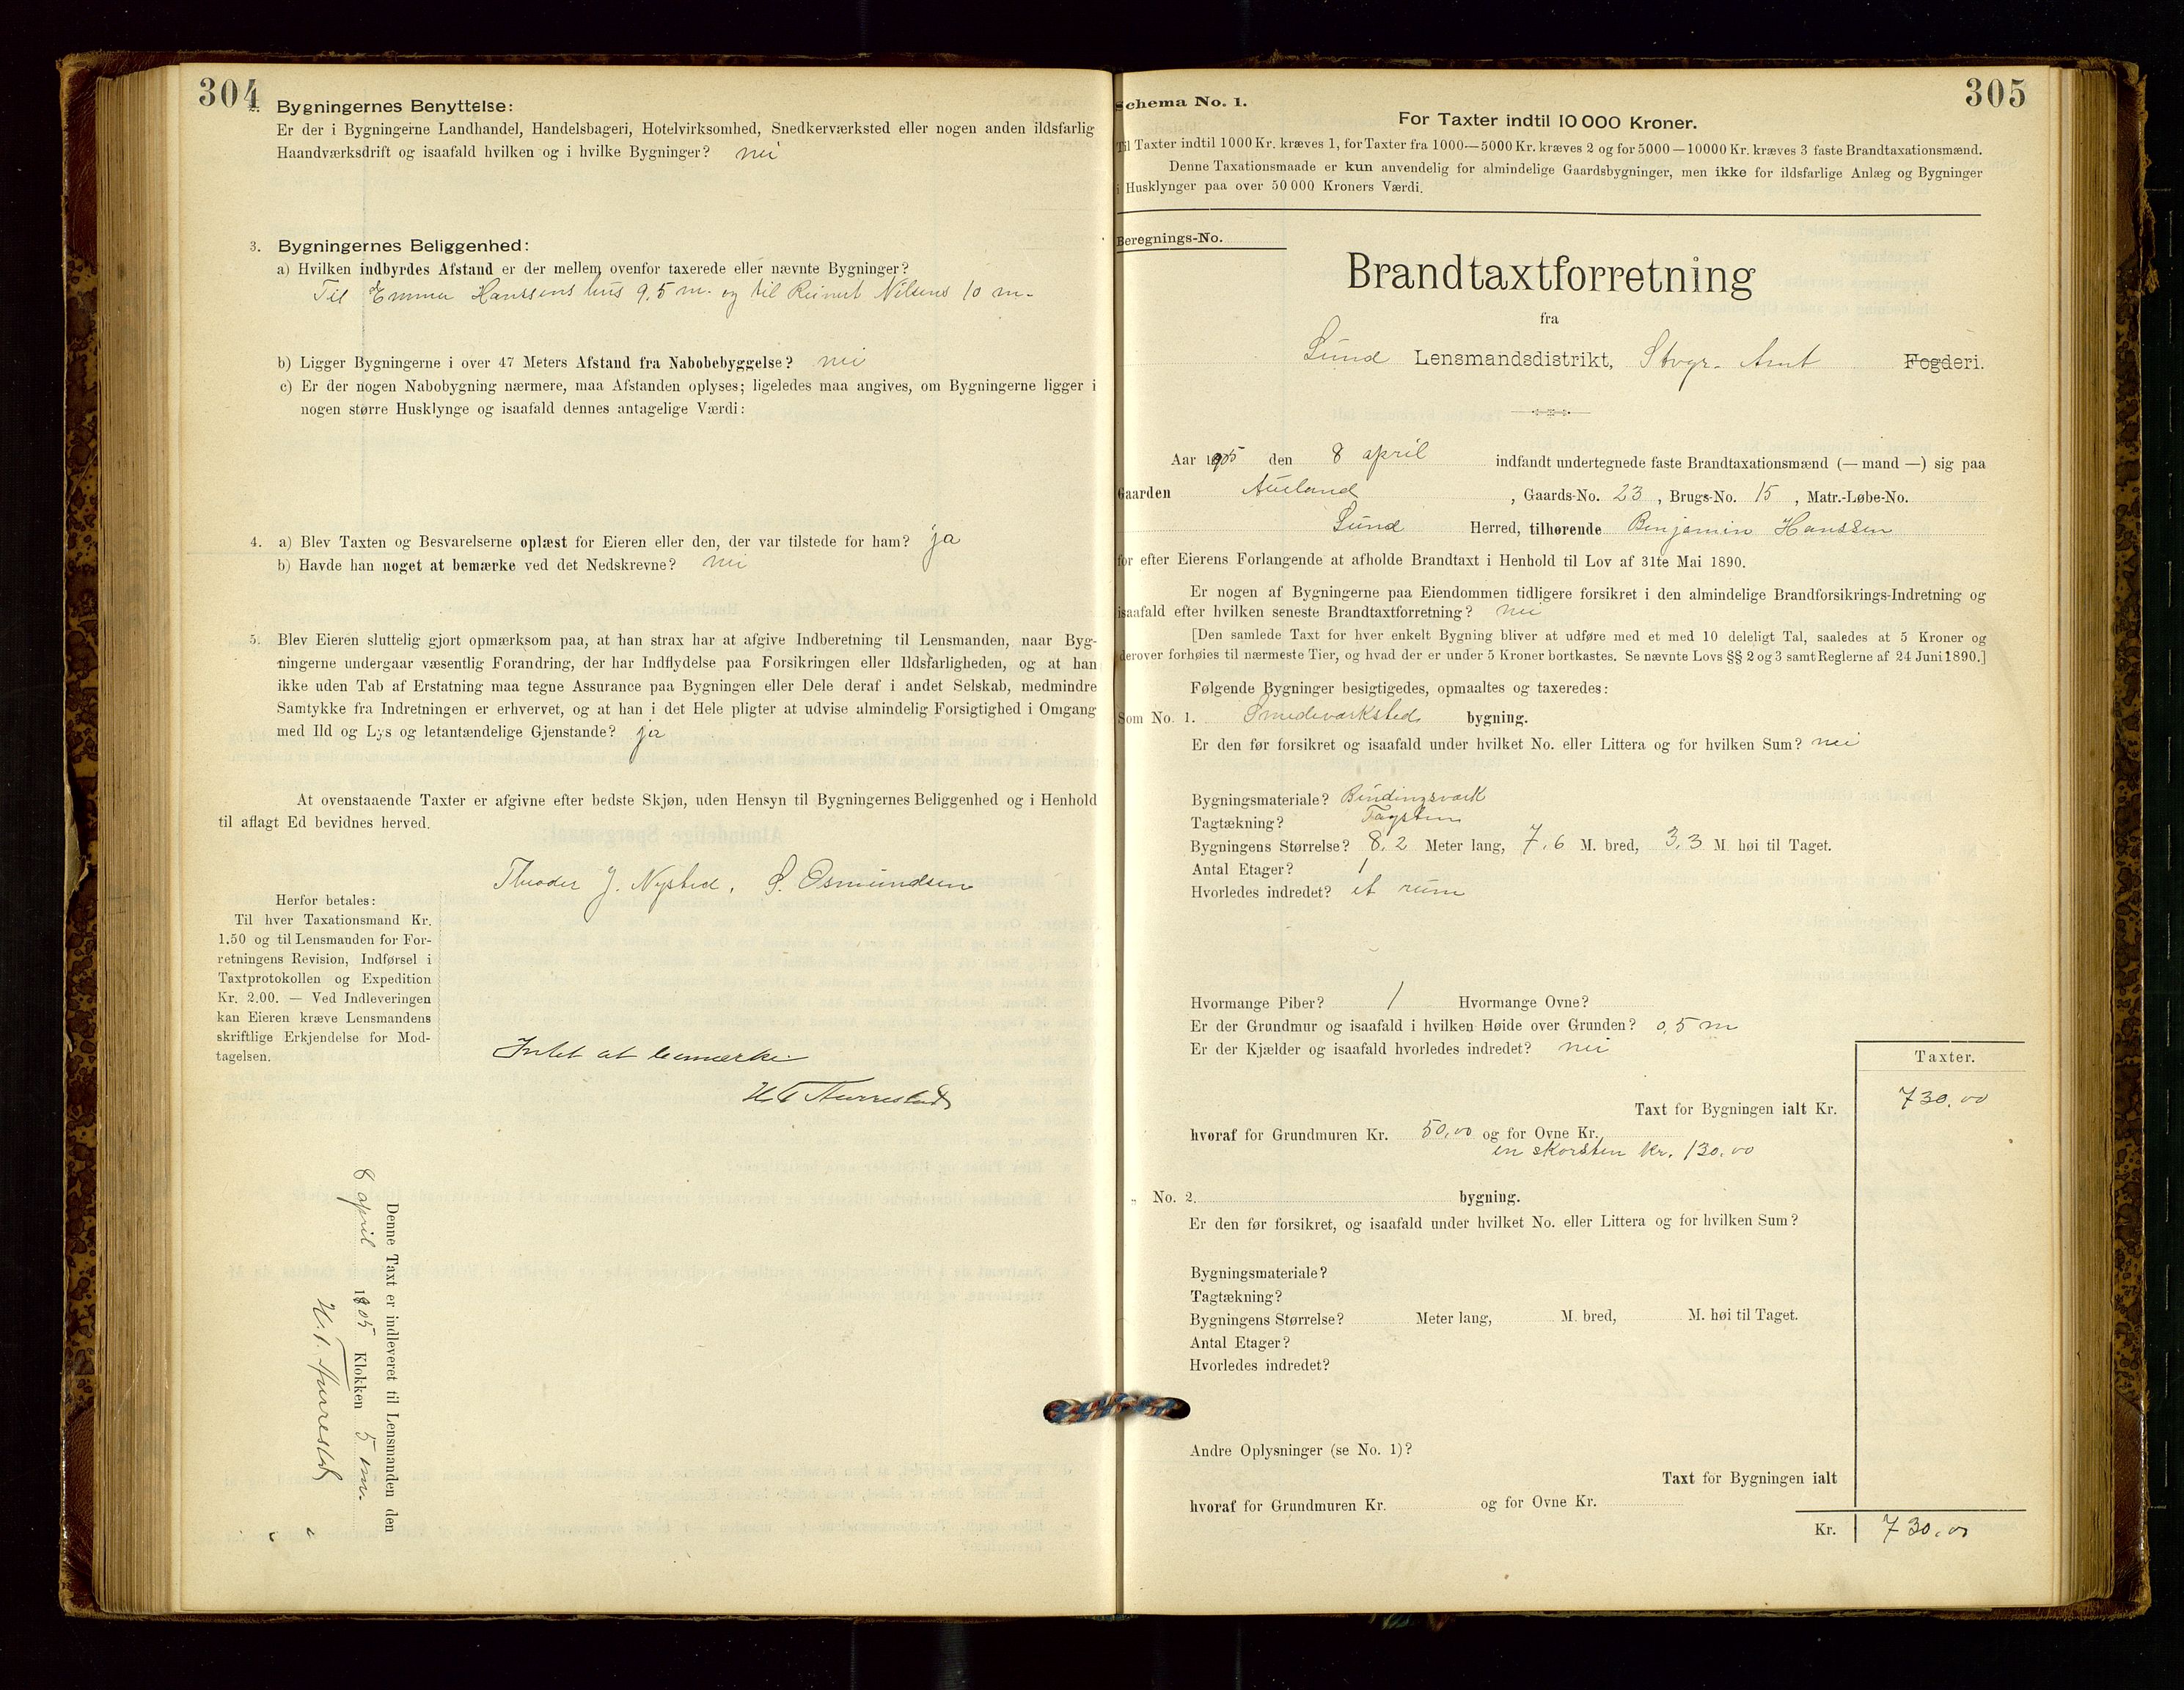 304
2. Bygningernes Benyttelse:
Er der i Bygningerne Landhandel, Handelsbageri, Hotelvirksomhed, Snedkerværksted eller nogen anden ildsfarlig
Haandværksdrift og isaafald hvilken og i hvilke Bygninger? nei
3. Bygningernes Beliggenhed:
a) Hvilken indbyrdes Afstand er der mellem ovenfor taxerede eller nævnte Bygninger?
Til Emma Hanssens hus 9,5 m. og til Reinert Nilsens 10 m.
b) Ligger Bygningerne i over 47 Meters Afstand fra Nabobebyggelse? nei
c) Er der nogen Nabobygning nærmere, maa Afstanden oplyses; ligeledes maa angives, om Bygningerne ligger i
nogen større Husklynge og isaafald dennes antagelige Værdi:
4. a) Blev Taxten og Besvarelserne oplæst for Eieren eller den, der var tilstede for ham? ja
b) Havde han noget at bemærke ved det Nedskrevne? nei
5. Blev Eieren sluttelig gjort opmærksom paa, at han strax har at afgive Indberetning til Lensmanden, naar Byg-
ningerne undergaar væsentlig Forandring, der har Indflydelse paa Forsikringen eller Ildsfarligheden, og at han
ikke uden Tab af Erstatning maa tegne Assurance paa Bygningen eller Dele deraf i andet Selskab, medmindre
Samtykke fra Indretningen er erhvervet, og at han i det Hele pligter at udvise almindelig Forsigtighed i Omgang
med Ild og Lys og letantændelige Gjenstande? ja
At ovenstaaende Taxter er afgivne efter bedste Skjøn, uden Hensyn til Bygningernes Beliggenhed og i Henhold
til aflagt Ed bevidnes herved.
Theodor J. Nysted. S. Osmundsen
Herfor betales:
Til hver Taxationsmand Kr.
1.50 og til Lensmanden for For-
retningens Revision, Indførsel i
Taxtprotokollen og Expedition
Kr. 2.00. — Ved Indleveringen
kan Eieren kræve Lensmandens
skriftlige Erkjendelse for Mod-
tagelsen.
Intet at bemærke
Denne Taxt er indleveret til Lensmanden den
8 april 1905 Klokken 5 em.
305
Schema No. 1.
For Taxter indtil 10 000 Kroner.
Til Taxter indtil 1000 Kr. kræves 1, for Taxter fra 1000—5000 Kr. kræves 2 og for 5000—10000 Kr. kræves 3 faste Brandtaxationsmænd.
Denne Taxationsmaade er kun anvendelig for almindelige Gaardsbygninger, men ikke for ildsfarlige Anlæg og Bygninger
i Husklynger paa over 50 000 Kroners Værdi.
Beregnings-No.
Brandtaxtforretning
fra
Lund Lensmandsdistrikt, Stvgr. Amt Fogderi.
Aar 1905 den 8 april indfandt undertegnede faste Brandtaxationsmænd (— mand —) sig paa
Gaarden Aueland, Gaards-No. 23, Brugs-No. 15, Matr.-Løbe-No.
Lund Herred, tilhørende Benjamin Hanssen
for efter Eierens Forlangende at afholde Brandtaxt i Henhold til Lov af 31te Mai 1890.
Er nogen af Bygningerne paa Eiendommen tidligere forsikret i den almindelige Brandforsikrings-Indretning og
isaafald efter hvilken seneste Brandtaxtforretning? nei
[Den samlede Taxt for hver enkelt Bygning bliver at udføre med et med 10 deleligt Tal, saaledes at 5 Kroner og
derover forhøies til nærmeste Tier, og hvad der er under 5 Kroner bortkastes. Se nævnte Lovs §§ 2 og 3 samt Reglerne af 24 Juni 1890.]
Følgende Bygninger besigtigedes, opmaaltes og taxeredes:
Som No. 1. Smedeværksteds bygning.
Er den før forsikret og isaafald under hvilket No. eller Littera og for hvilken Sum? nei
Bygningsmateriale? Bindingsværk
Tagtækning? Tagsten
Bygningens Størrelse? 8,2 Meter lang, 7,6 M. bred, 3,3 M høi til Taget.
Antal Etager? 1
Hvorledes indredet? et rum
Hvormange Piber? 1 Hvormange Ovne?
Er der Grundmur og isaafald i hvilken Høide over Grunden? 0,5 m
Er der Kjælder og isaafald hvorledes indredet? nei
Taxter.
Taxt for Bygningen ialt Kr. 730.00
hvoraf for Grundmuren Kr. 50,00 og for Ovne Kr.
en skorsten kr. 130.00
„ No. 2. bygning.
Er den før forsikret, og isaafald under hvilket No. eller Littera og for hvilken Sum?
Bygningsmateriale?
Tagtækning?
Bygningens Størrelse? Meter lang, M. bred, M. høi til Taget.
Antal Etager?
Hvorledes indredet?
Andre Oplysninger (se No. 1)?
Taxt for Bygningen ialt
hvoraf for Grundmuren Kr. og for Ovne Kr.
Kr. 730.00